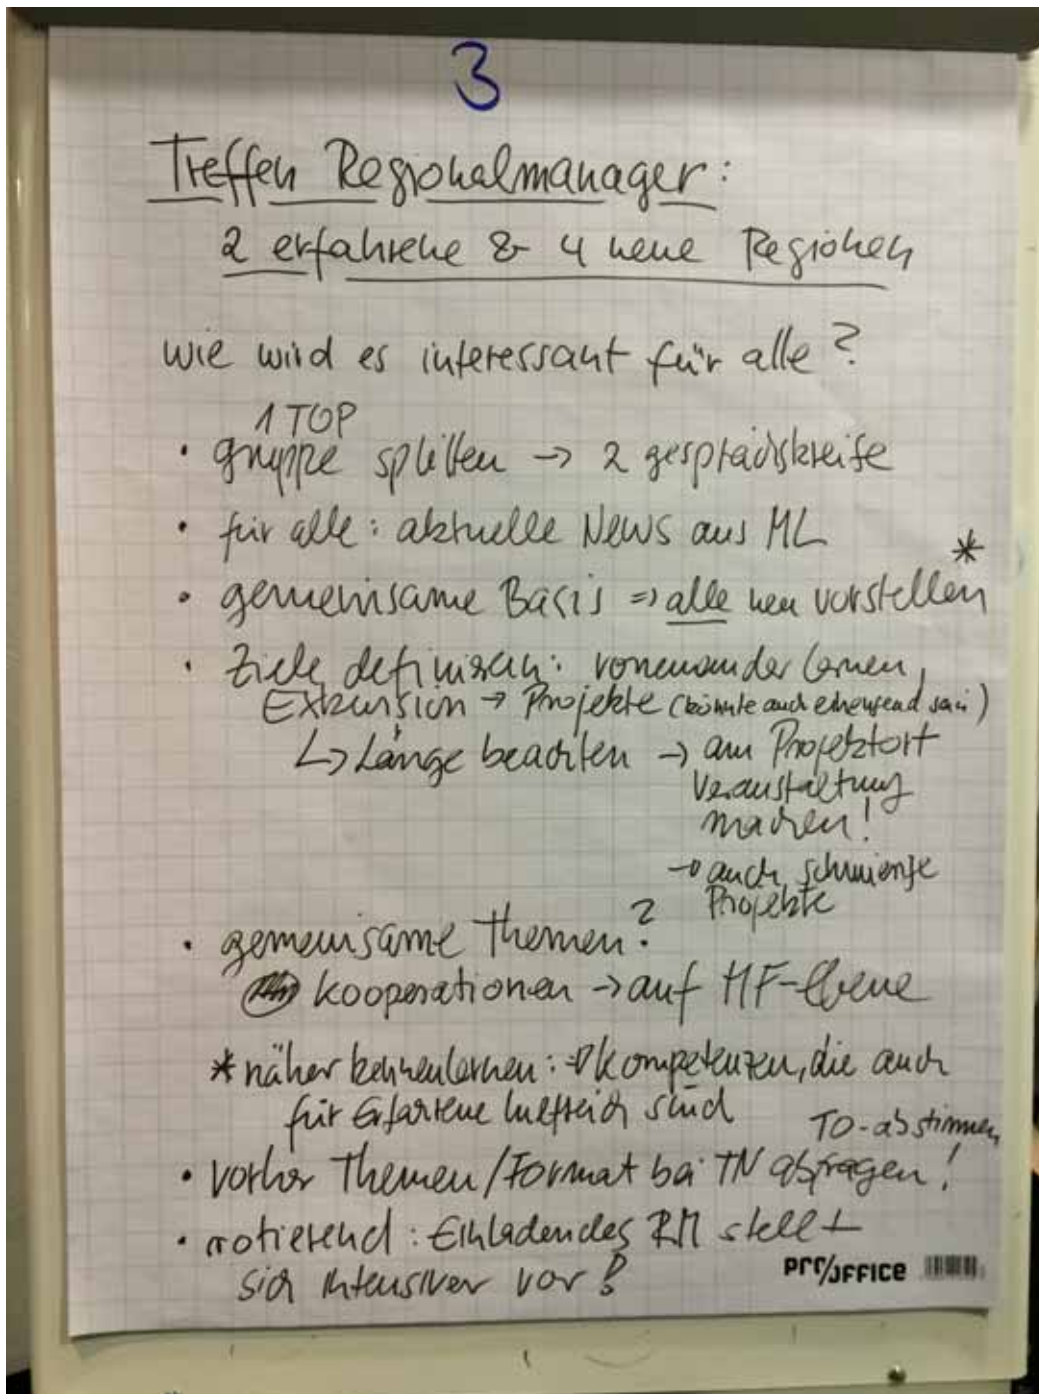 3
Treffen Regionalmanager:
2 erfahrene & 4 neue Regionen
wie wird es interessant für alle?
1 TOP
• gruppe splitten → 2 gesprächskreise
• für alle: aktuelle News aus ML
*
• gemeinsame Basis ⇒ alle neu vorstellen
• Ziele definieren: voneinander lernen,
Exkursion → Projekte (könnte auch ehrend sein)
↳ Länge beachten → am Projektort
Veranstaltung
machen!
→ auch schwierige
Projekte
• gemeinsame Themen?
Kooperationen → auf MF-Ebene
* näher kennenlernen: ⇒ Kompetenzen, die auch
für Erfahrene hilfreich sind
TO-abstimmen
• vorher Themen/Format bei TN abfragen!
• rotierend: Einladendes RM stellt
sich intensiver vor!
PRO/OFFICE